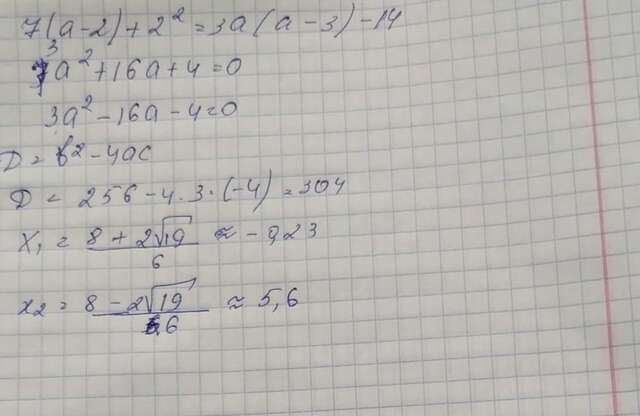 7(a-2)+2²=3a(a-3)-14
3a²+16a+4=0
3a²-16a-4=0
D = b²-4ac
D = 256-4·3·(-4)=304
x₁ = (8+2√19)/6 ≈ -0,23
x₂ = (8-2√19)/6 ≈ 5,6